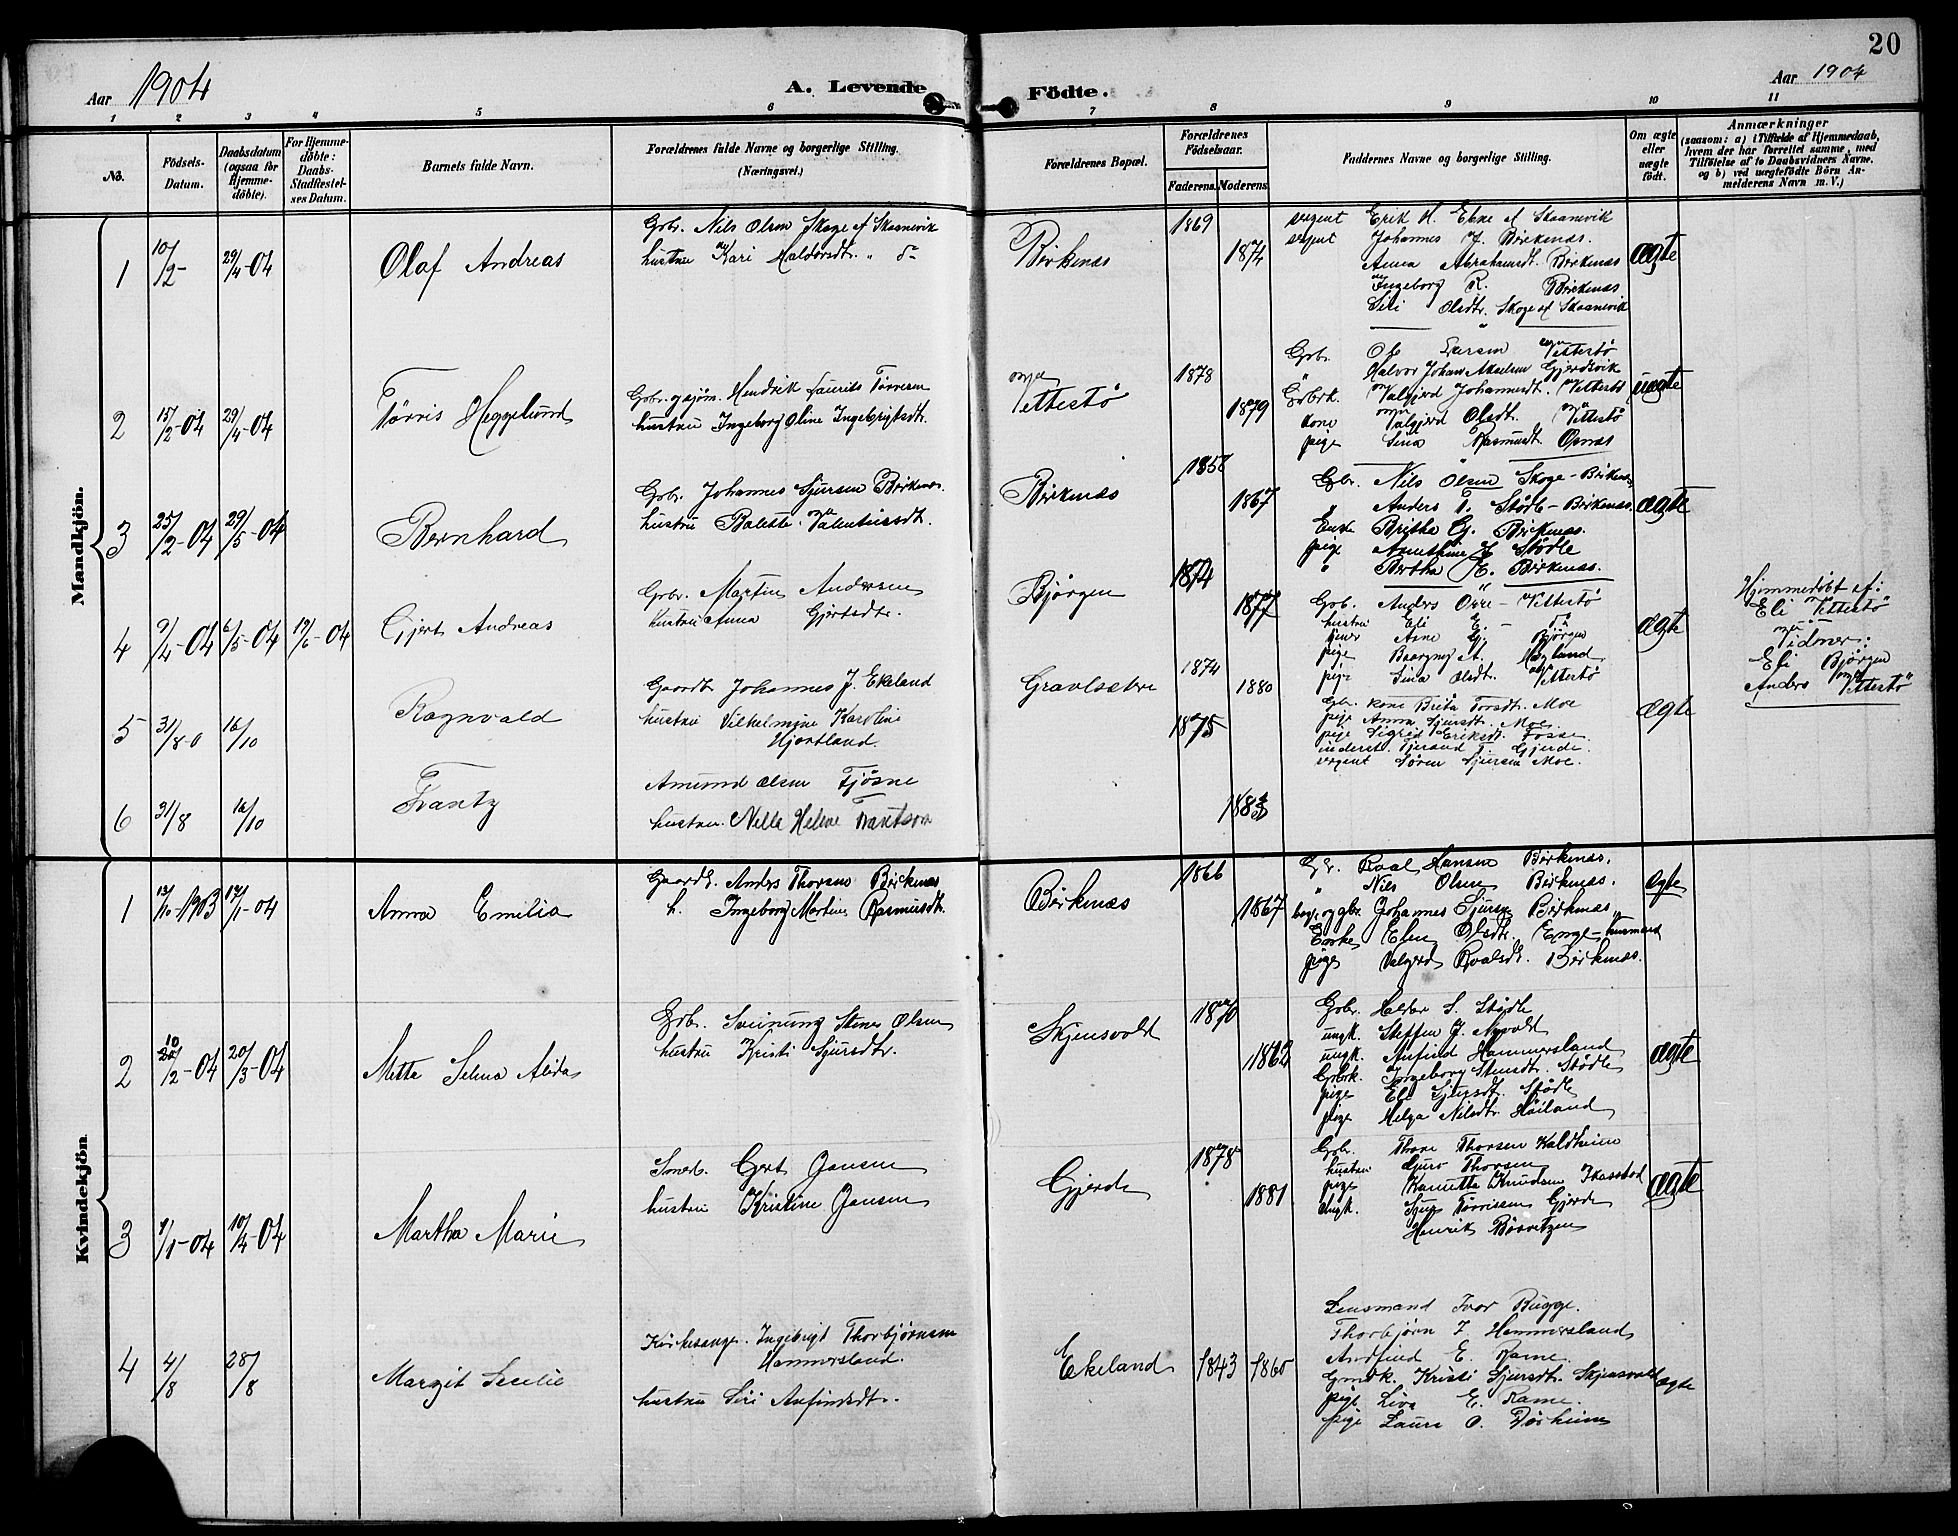 20
Aar 1904
A. Levende
Födte.
Aar 1904
1 2 3 4 5 6 7 8 9 10 11
No.
Födsels-Datum.
Daabsdatum (ogsaa for Hjemme-döbte).
For Hjemme-döbte: Daabs-Stadfæstel-ses Datum.
Barnets fulde Navn.
Forældrenes fulde Navne og borgerlige Stilling. (Næringsvei.)
Forældrenes Bopæl.
Forældrenes Födselsaar.
Faderens. Moderens.
Faddernes Navne og borgerlige Stilling.
Om ægte eller uægte födt.
Anmærkninger
(saasom: a) i Tilfælde af Hjemmedaab, hvem der har forrettet samme, med Tilföielse af to Daabsvidners Navne, og b) ved uægtefödte Börn An-melderens Navn m. V.)
Mandkjön.
1 10/2- 29/4-04 Olaf Andreas
Gbr. Nils Olsen Skoge af Skaanevik
hustru Kari Haldorsdt. " d-
Birkenæs 1869 1874
sergent Erik H. Ebne af Skaanevik
sergent Johannes J. Birkenæs.
Anna Abrahamsdt. Birkenæs
Ingeborg R. Birkenæs
Siri Olsdtr. Skoge af Skaanevik
ægte
2 15/2-04 29/4-04 Tørris Heggelund
Gbr. og sjøm. Hendrik Laurits Tørresen
hustru Ingeborg Oline Ingebrigtsdt.
Vettestø 1878 1879
Gbr. Ole Larsen Vettestø
" Halvor Johan Akselsen Gjerdevik
Gbrk. Valgjerd Johannesdt. Vettestø
kone Valgjerd Olsdt. Vettestø
pige Sina Rasmusdt. Opnæs
uægte
3 25/2-04 29/5-04 Bernhard
Gbr. Johannes Sjursen Birkenæs.
hustru Balette Valentinsdt.
Birkenæs 1858 1867
Gbr. Nils Olsen Skoge - Birkenæs
" Anders T. Stödle - Birkenæs.
Enke Britha G. Birkenæs.
pige Stödle
" Bertha H. Birkenæs.
ægte
4 9/4-04 6/5-04 19/6-04 Gjert Andreas
Gbr. Martin Andersen
hustru Anna Gjertsdtr.
Bjørgen 1874 1877
Gbr. Anders Vettestø
hustru Eli E. - d-
Ane G. Bjørgen
pige A. Høyland
pige Sina Olsdt. Vettestø
ægte
Hjemmedøbt af:
Eli Vettestø
Vidner:
Eli Bjørgen
Anders Vettestø
5 31/8-0 16/10 Ragnvald
Gaardb. Johannes J. Ekeland
hustru Vilhelmine Karoline
Hjortland.
Gravlsæter 1874 1880
Gbr. kone Brita Torsdt. Moe
pige Anna Sjursdt. Moe
pige Sigrid Eriksdt. Fosse
inderst. Tjerand T. Gjerde.
sergent Søren Sjursen Moe.
ægte
6 31/8 16/10 Frantz
Amund Olsen Fjøsne
hustru. Nelle Helene Frantsen
1875
Kvindekjön.
1 13/10-1903 17/1-04 Anna Emilia
Gaardb. Anders Thorsen Birkenæs
h. Ingeborg Martine Rasmusdt.
Birkenæs 1866 1867
Gbr. Roal Hansen Birkenæs.
" Nils Olsen Birkenæs.
Johannes Sjursen Birkenæs
Enke Elen Olsdtr. Enge - husmand
pige Valgerd Roalsdt. Birkenæs.
ægte
2 10/2-04 20/3-04 Mette Selma Alida
Gbr. Sveinung Stenes Olsen
hustru Kristi Sjursdtr.
Skjensvold 1870 1862
Gbr. Haldor S. Stødle
ungk. Steffen J. Nyvold
ungk. Anfind Hammersland
Gbrk. Ingeborg Stensdt. Stødle
pige Eli Sjursdt. Stødle
pige Helga Nilsdtr. Høiland
ægte
3 1/1-04 10/4-04 Martha Marie
Smed. Gert Jansen
hustru Kristine Jansen
Gjerde 1878 1881
Gbr. Thore Thorsen Kaldheim
hustru Guro Thorsen
pige Kanutta Knudsen
ungk. Sjur Tørrissen Gjerde
Henrik
ægte
4 4/8 28/8 Margit Secilie
Kirkesanger. Ingebrigt Thorbjørnsen
Hammersland.
hustru Siri Anfindsdt.
Ekeland 1843 1865
Lensmand Ivar Bugge.
Thorbjørn I. Hammersland
Andfind E. Rame.
Gmdk. Kristi Sjursdt. Skjensvold
pige Liva E. Rame.
pige Laura O. Dørheim
ægte